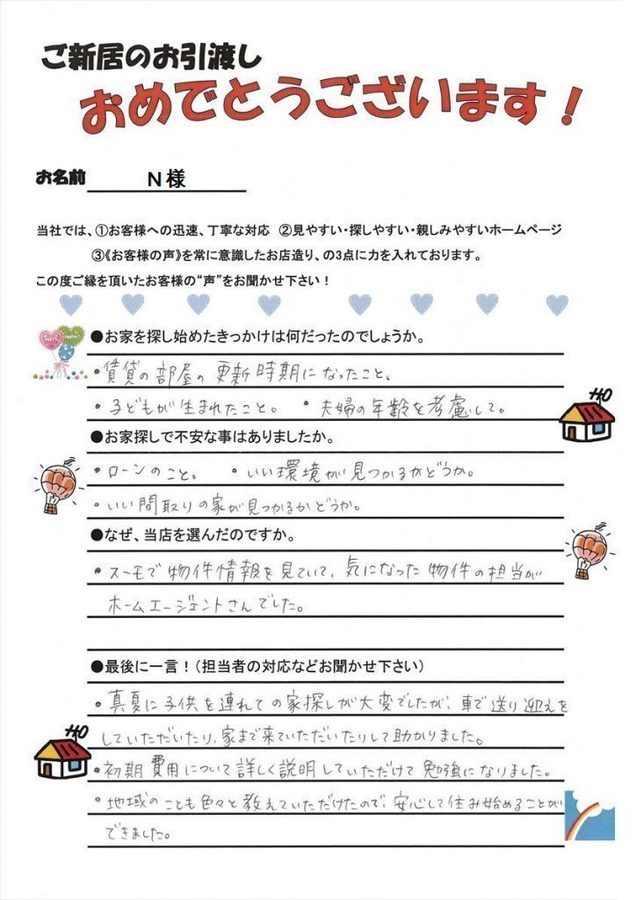 ご新居のお引渡し
おめでとうございます！
お名前 N様
当社では、①お客様への迅速、丁寧な対応 ②見やすい・探しやすい・親しみやすいホームページ
③《お客様の声》を常に意識したお店造り、の3点に力を入れております。
この度ご縁を頂いたお客様の“声”をお聞かせ下さい！
●お家を探し始めたきっかけは何だったのでしょうか。
・賃貸の部屋の更新時期になったこと。
・子どもが生まれたこと。 ・夫婦の年齢を考慮して。
●お家探しで不安な事はありましたか。
・ローンのこと。 ・いい環境が見つかるかどうか。
・いい間取りの家が見つかるかどうか。
●なぜ、当店を選んだのですか。
・スーモで物件情報を見ていて、気になった物件の担当が
ホームエージェントさんでした。
●最後に一言！（担当者の対応などお聞かせ下さい）
・真夏に子供を連れての家探しが大変でしたが、車で送り迎えを
していただいたり、家まで来ていただいたりして助かりました。
・初期費用について詳しく説明していただけて勉強になりました。
・地域のことも色々と教えていただけたので、安心して住み始めることが
できました。